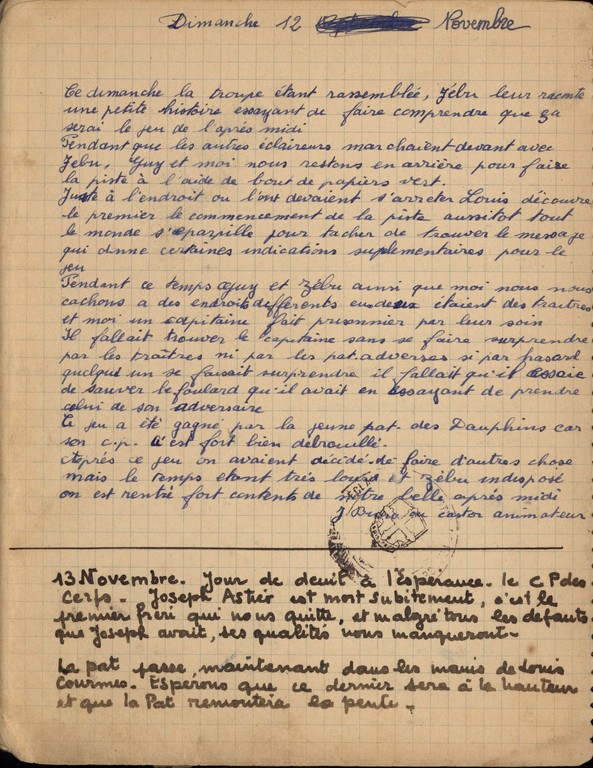 Dimanche 12 Novembre
Ce dimanche la troupe étant rassemblée, Zébu leur raconte
une petite histoire essayant de faire comprendre que ça
serai le jeu de l'après midi
Pendant que les autres éclaireurs marchaient devant avec
Zebu, Guy et moi nous restons en arrière pour faire
la piste à l'aide de bout de papiers vert.
Juste à l'endroit ou l'on devaient s'arreter Louis découvre
le premier le commencement de la piste aussitot tout
le monde s'eparpille pour tacher de trouver le message
qui donne certaines indications suplementaires pour le
jeu
Pendant ce temps Guy et Zébu ainsi que moi nous nous
cachons a des endroits différents eux deux étaient des traitres
et moi un capitaine fait prisonnier par leur soin
Il fallait trouver le capitaine sans se faire surprendre
par les traîtres ni par les pat. adverses si par hasard
quelqu'un se faisait surprendre il fallait qu'il essaie
de sauver le foulard qu'il avait en essayant de prendre
celui de son adversaire
Ce jeu a été gagné par la jeune pat. des Dauphins car
son c.p. c'est fort bien débrouillé.
Après ce jeu on avaient décidé de faire d'autres chose
mais le temps etant très lourd et Zébu indisposé
on est rentré fort contents de notre belle après midi
J. ou castor animateur
13 Novembre. Jour de deuil à l'Espérance. le C P des
Cerfs. Joseph Astier est mort subitement, c'est le
premier frère qui nous quitte, et malgré tous les defauts
que Joseph avait, ses qualités nous manqueront.
La pat passe, maintenant dans les mains de Louis
Courmes. Espérons que ce dernier sera à la hauteur
et que la Pat remontera la pente.